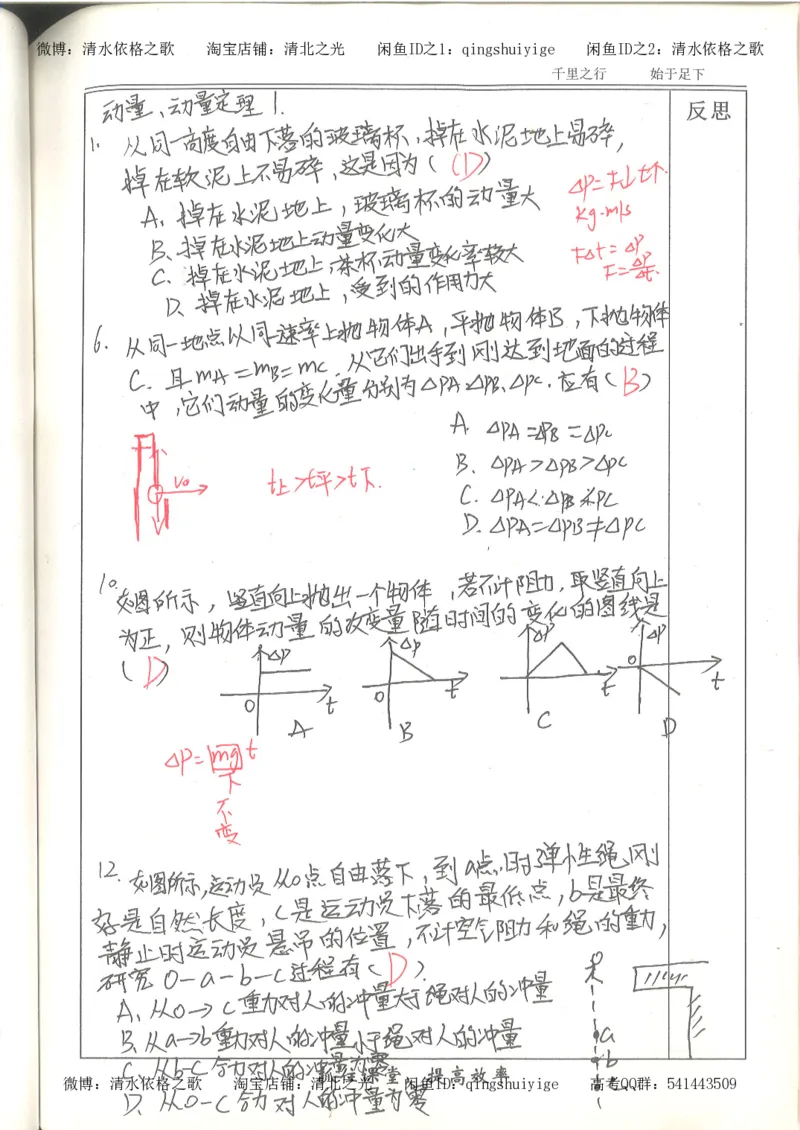 微博：清水依格之歌 淘宝店铺：清北之光 闲鱼ID之1：qingshuiyige 闲鱼ID之2：清水依格之歌
千里之行 始于足下
反思
动量、动量定理 1.
1. 从同一高度自由下落的玻璃杯，掉在水泥地上易碎，
掉在软泥上不易碎，这是因为（ (D) ）
A、掉在水泥地上，玻璃杯的动量大
B、掉在水泥地上动量变化大
C、掉在水泥地上，茶杯动量变化率较大
D、掉在水泥地上，受到的作用力大
ΔP=F↓t↑.
kg·m/s
FΔt=ΔP
F=ΔP/Δt.
6. 从同一地点以同速率上抛物体A，平抛物体B，下抛物体
C. 且mA=mB=mC. 从它们出手到刚达到地面的过程
中，它们动量的变化量分别为ΔPA、ΔPB、ΔPC. 应有（B）
A. ΔPA=ΔPB=ΔPC
B. ΔPA>ΔPB>ΔPC
C. ΔPA<ΔPB<PC
D. ΔPA=ΔPB≠ΔPC
v0
t上>t平>t下.
10. 如图所示，竖直向上抛出一个物体，若不计阻力，取竖直向上
为正，则物体动量的改变量随时间的变化的图线是
（D）
ΔP O t A
ΔP O t B
ΔP t C
ΔP O t D
ΔP=mg t
不
变
12. 如图所示，运动员从O点自由落下，到a点时弹性绳刚
好是自然长度，c是运动员下落的最低点，b是最终
静止时运动员悬吊的位置，不计空气阻力和绳的重力，
研究O-a-b-c过程有（D）.
A、从O→c重力对人的冲量大于绳对人的冲量
B、从a→b重力对人的冲量小于绳对人的冲量
C、从b-c合力对人的冲量为零
D、从O-c合力对人的冲量为零
a
b
课堂 提高效率
微博：清水依格之歌 淘宝店铺：清北之光 闲鱼ID：qingshuiyige 高考QQ群：541443509